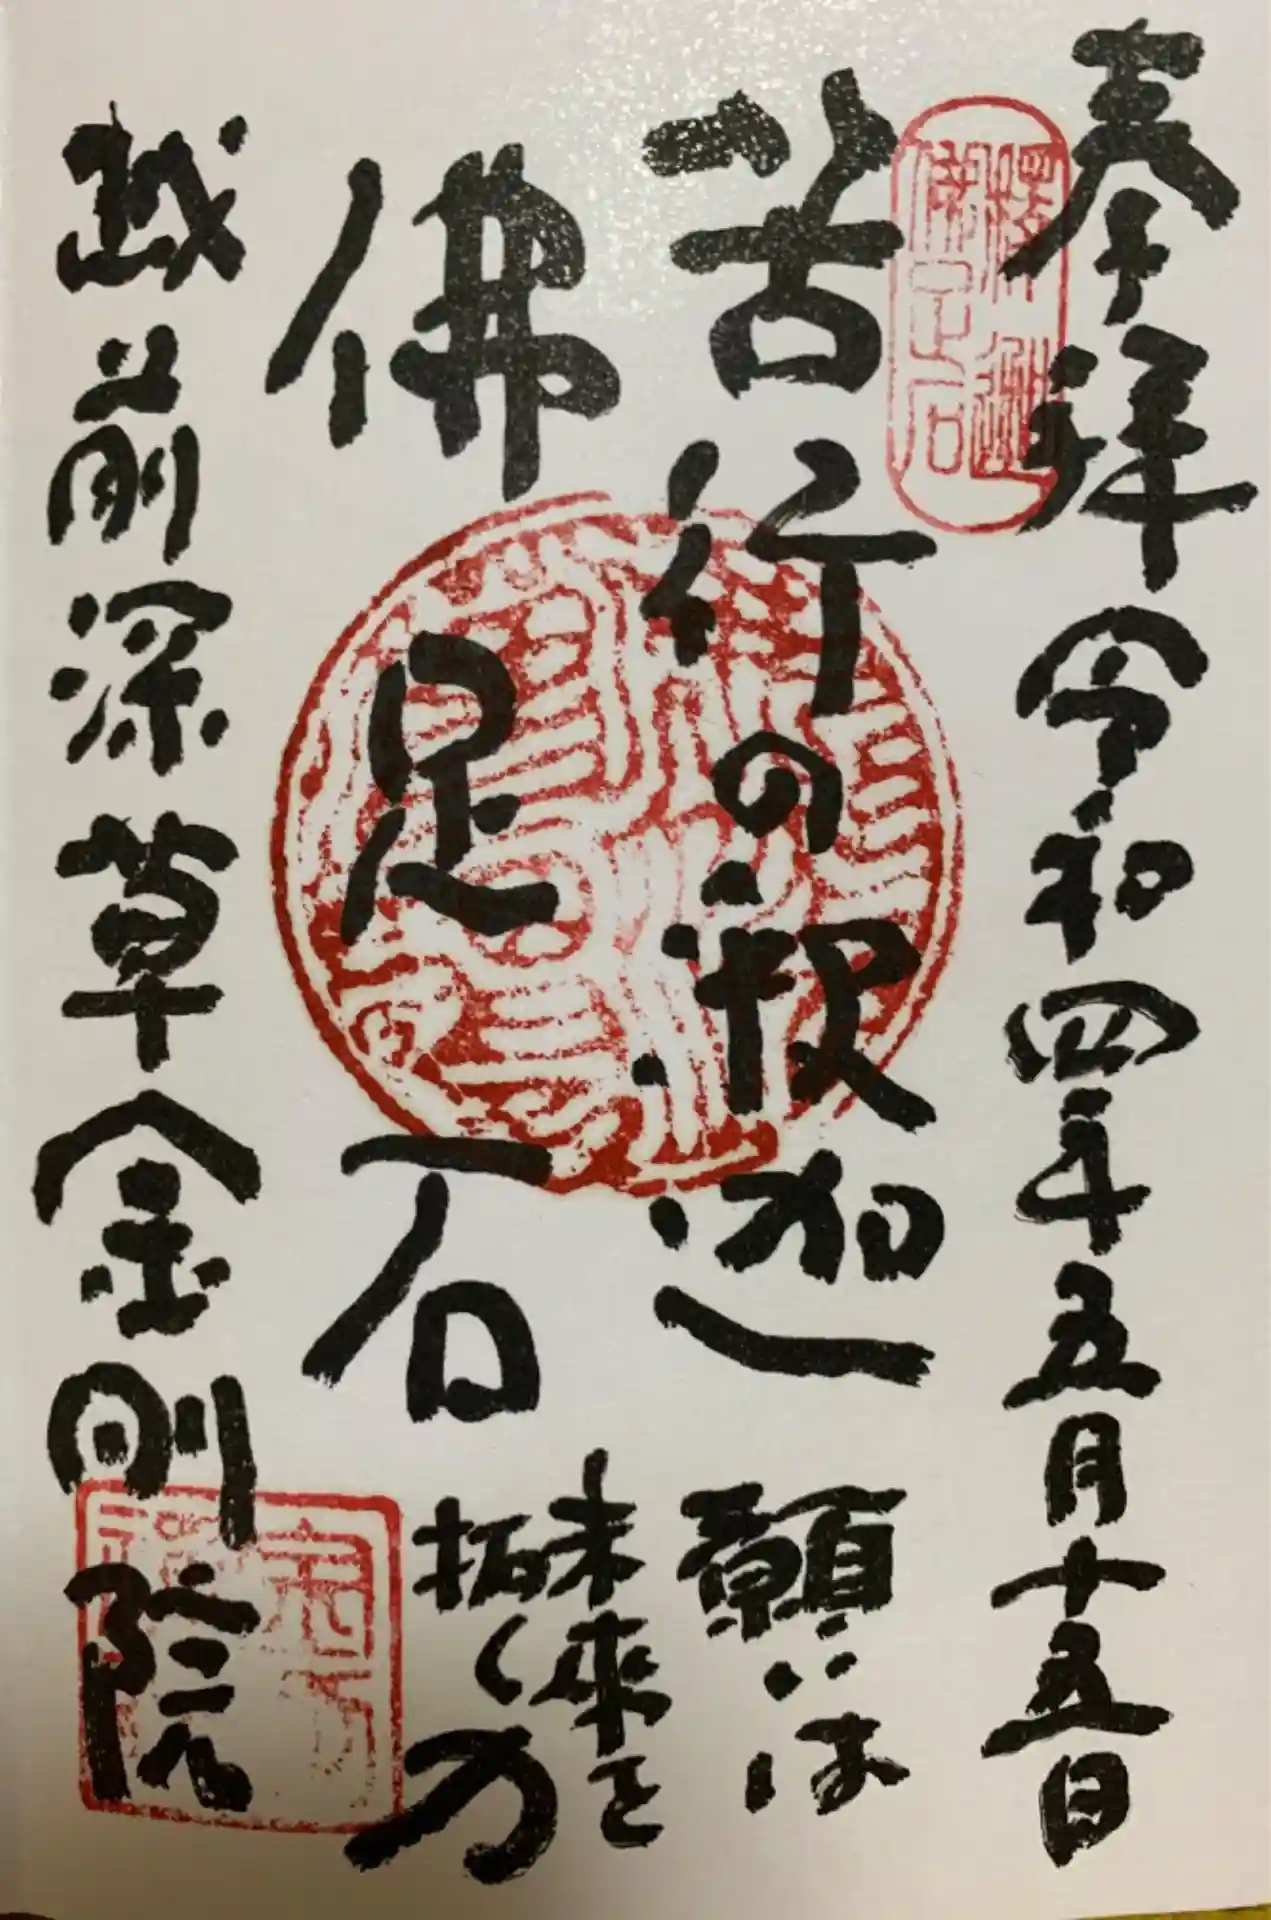 奉拝 令和四年五月十五日
苦行の釈迦
佛足石
願いは
未来を
拓く力
越前深草金剛院
佛足石